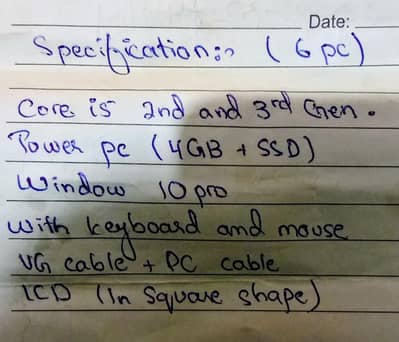 Date:
Specification:- (6 pc)
Core i5 2nd and 3rd Gen.
Power pc (4GB + SSD)
Window 10 pro
with keyboard and mouse
VG cable + PC cable
LCD (In Square shape)